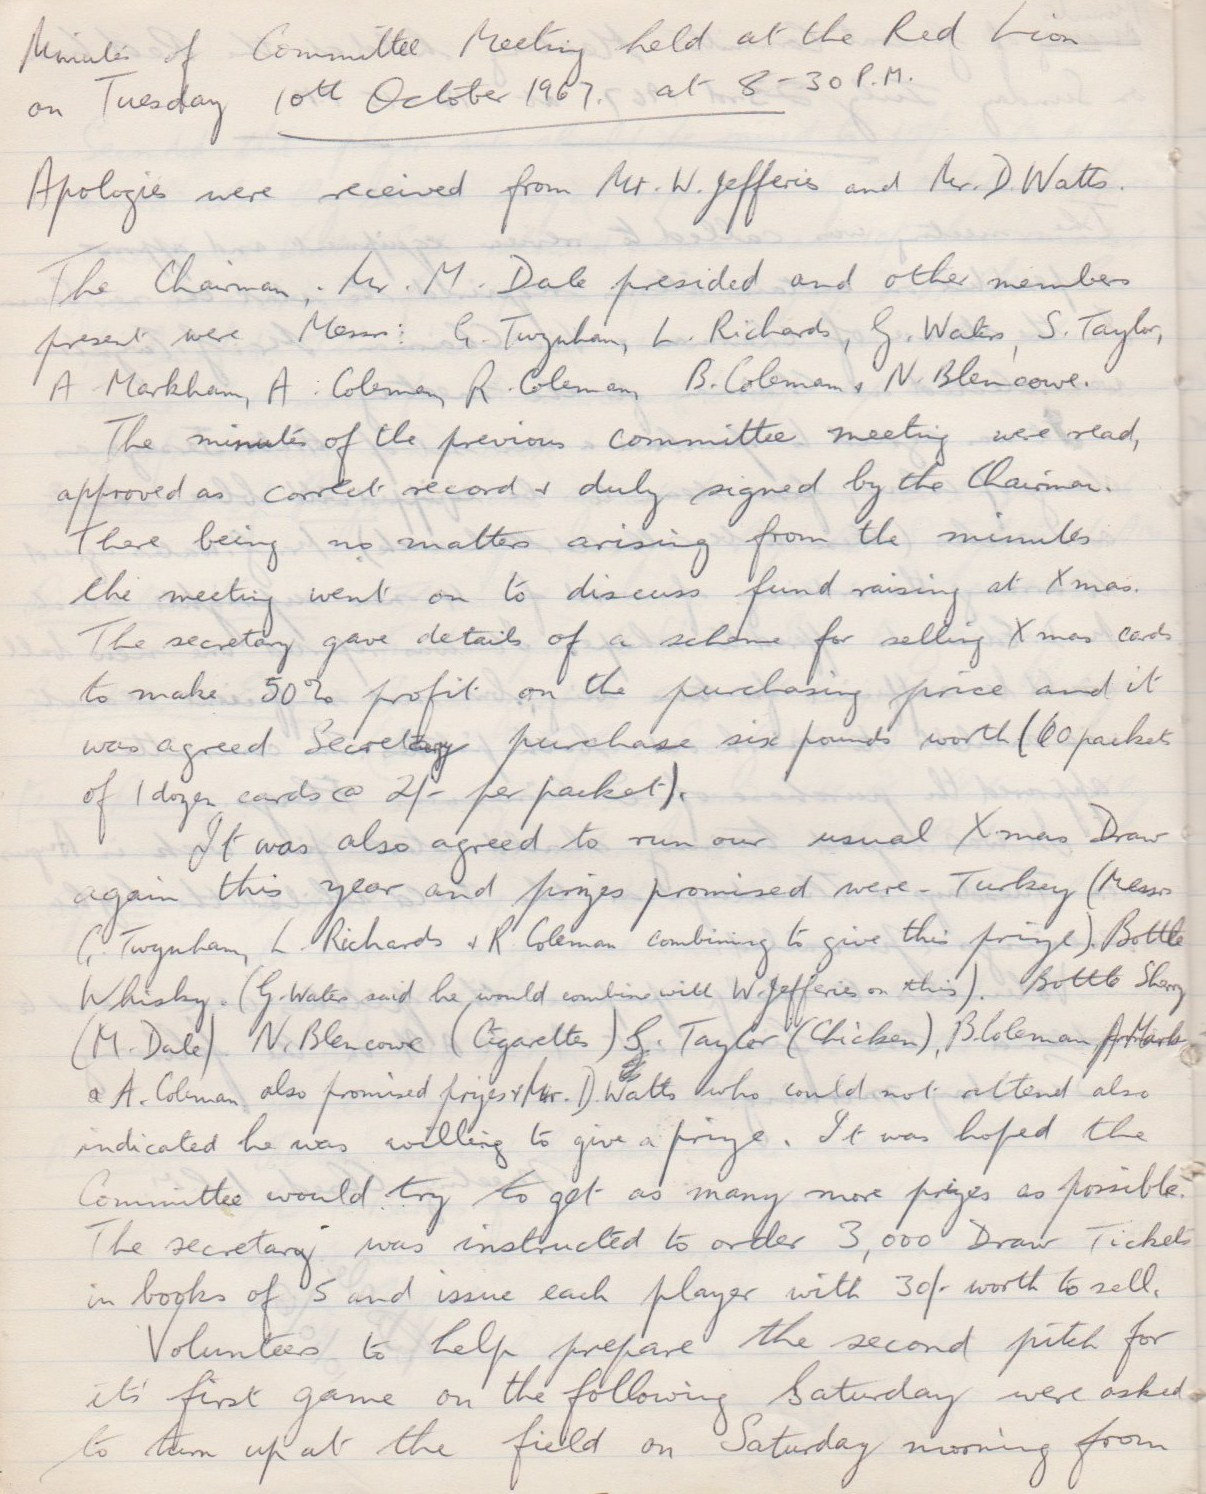 Minutes of Committee Meeting held at the Red Lion
on Tuesday 10th October 1967. at 8-30 P.M.
Apologies were received from Mr. W. Jefferies and Mr. D. Watts.
The Chairman, Mr. M. Dale presided and other members
present were Messrs: G. Twynham, L. Richards, G. Water, S. Taylor,
A Markham, A. Coleman, R. Coleman, B. Coleman & N. Blencowe.
The minutes of the previous committee meeting were read,
approved as correct record & duly signed by the Chairman.
There being no matters arising from the minutes
the meeting went on to discuss fund raising at Xmas.
The secretary gave details of a scheme for selling Xmas cards
to make 50% profit on the purchasing price and it
was agreed Secretary purchase six pounds worth (60 packets
of 1 dozen cards @ 2/- per packet).
It was also agreed to run our usual Xmas Draw
again this year and prizes promised were - Turkey (Messrs
G. Twynham, L. Richards & R Coleman combining to give this prize). Bottle
Whisky. (G. Water said he would combine with W. Jefferies on this). Bottle Sherry
(M. Dale) N. Blencowe (Cigarettes) S. Taylor (Chicken), B. Coleman
& A. Coleman also promised prizes & Mr. D. Watts who could not attend also
indicated he was willing to give a prize. It was hoped the
Committee would try to get as many more prizes as possible.
The secretary was instructed to order 3,000 Draw Tickets
in books of 5 and issue each player with 30/- worth to sell.
Volunteers to help prepare the second pitch for
it's first game on the following Saturday were asked
to turn up at the field on Saturday morning from